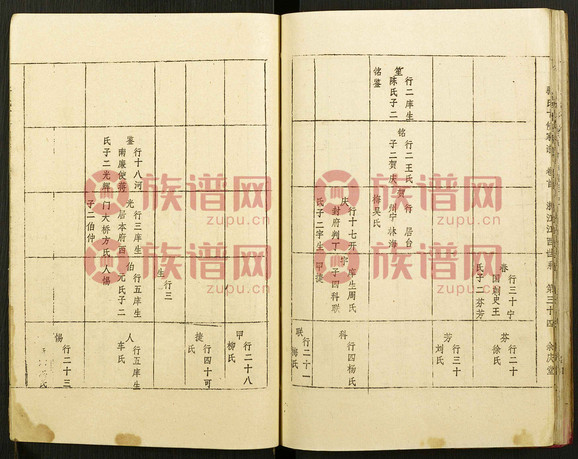 笙
行二库生
陈氏子二
铭鉴
铭
行二王氏
子二贺庆
贺
行
居台
州宁林海
梅吴氏
庆
行十七开
封府判丁
氏子二宇生
宇
库生周氏
子四科联
甲捷
春
行三十宁
国尉史王
氏子二芬芳
芬
行二十
徐氏
芳
行三十
刘氏
科
行四杨氏
联
行二十一
余庆堂
第三十四
鉴
行十八河
南廉使蒋
氏子二光辉
光
行三库生
居本府西
门大桥方氏
子二伯仲
人惕
伯
行五库生
元氏子二
生
行三
甲
行二十八
柳氏
捷
行四十可
氏
人
行五库生
车氏
惕
行二十三
族谱网
zupu.cn
族谱网
zupu.cn